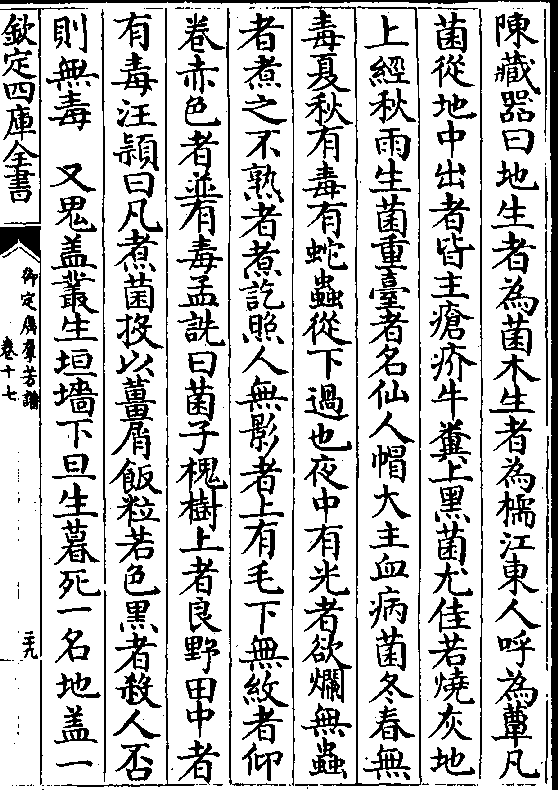 陳藏器曰地生者為菌木生者為檽江東人呼為蕈凡
菌從地中出者皆主瘡疥牛糞上黑菌尤佳若燒灰地
上經秋雨生菌重臺者名仙人帽大主血病菌冬春無
毒夏秋有毒有蛇蟲從下過也夜中有光者欲爛無蟲
者煮之不熟者煮訖照人無影者上有毛下無紋者仰
卷赤色者並有毒孟詵曰菌子槐樹上者良野田中者
有毒汪頴曰凡煮菌投以薑屑飯粒若色黑者殺人否
則無毒　又鬼盖叢生垣墻下旦生暮死一名地盖一
欽定四庫全書
御定廣羣芳譜
卷十七
三九